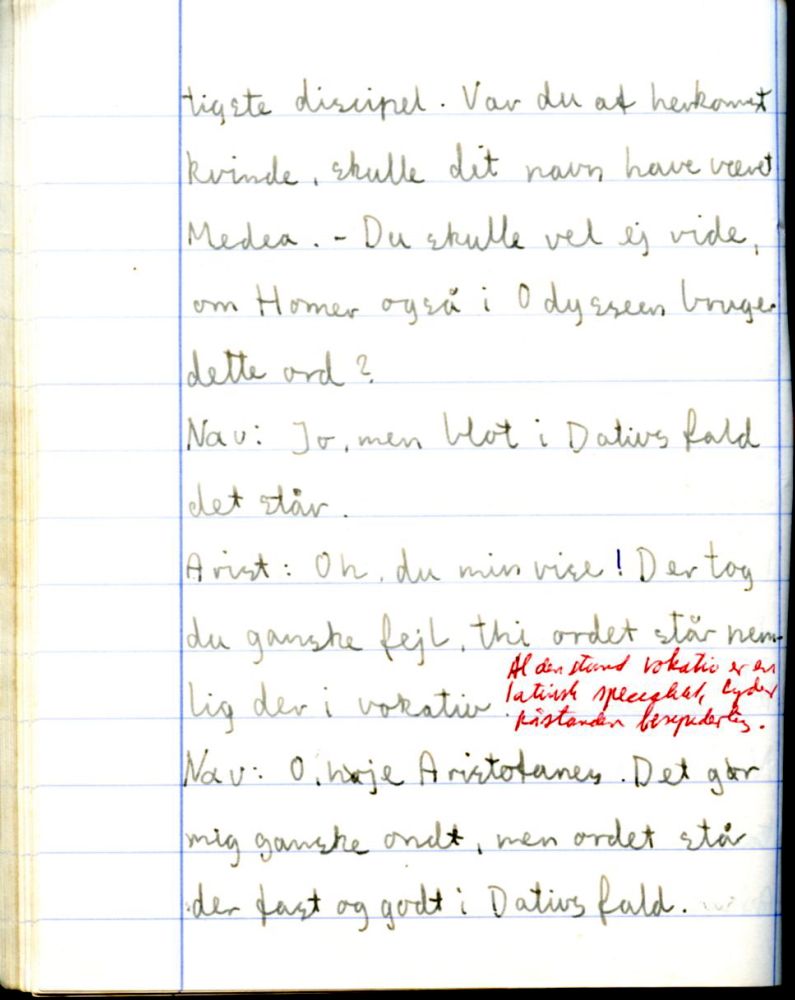 tigste discipel. Var du af herkomst
kvinde, skulle dit navn have været
Medea. - Du skulle vel ej vide,
om Homer også i Odysseen bruger
dette ord?
Nav: Jo, men blot i Dativs fald
det står.
Arist: Oh, du min vise! Der tog
du ganske fejl, thi ordet står nem-
lig der i vokativ.
Al den stund vokativ er en
latinsk specialitet, lyder
påstanden besynderlig.
Nav: O, høje Aristofanes. Det gør
mig ganske ondt, men ordet står
der fast og godt i Dativs fald.